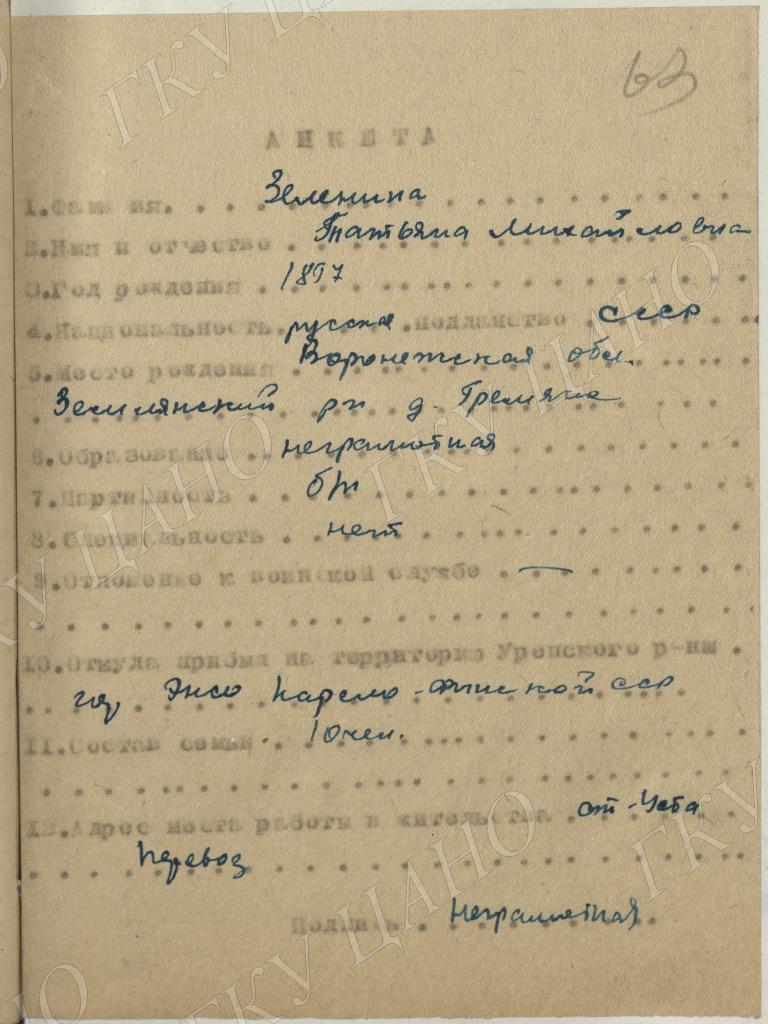 63
АНКЕТА
1.Фамилия. Зеленина
2.Имя и отчество Татьяна Михайловна
3.Год рождения 1897
4.Национальность русская подданство СССР
5.Место рождения Воронежская обл.
Землянский рн д. Гремяче
6.Образование неграмотная
7.Партийность б/п
8.Специальность нет
9.Отношение к воинской службе —
10.Откуда прибыл на территорию Уренского р-на
гор Энсо Карело-финской сср
11.Состав семьи 1 очел.
12.Адрес места работы и жительства ст-Уста
Перевоз
Подпись неграмотная
ГКУ ЦАНО
ГКУ ЦАНО
ГКУ ЦАНО
ГКУ ЦАНО
ГКУ ЦАНО